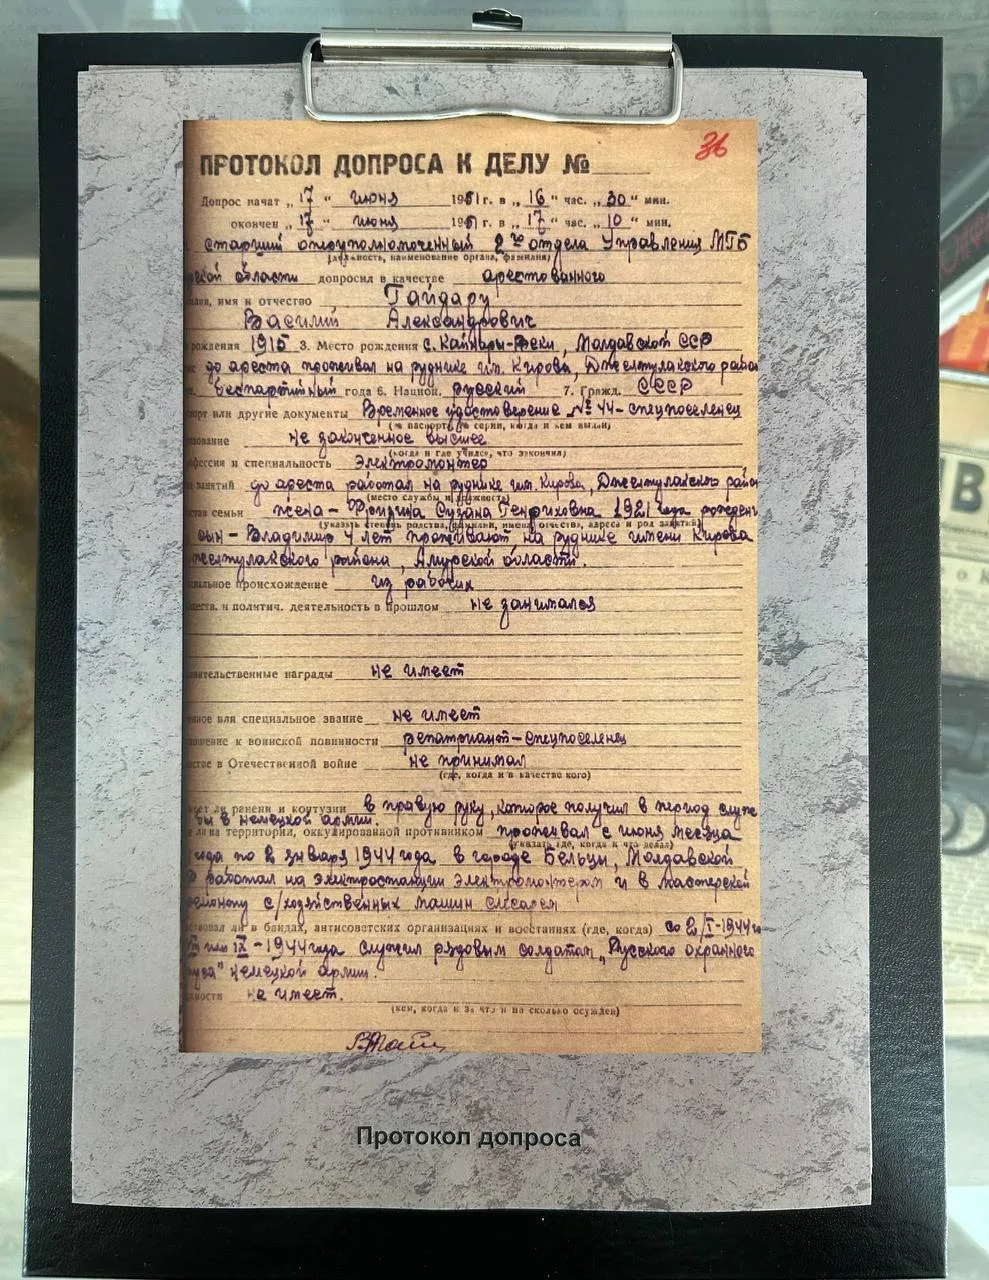 36
ПРОТОКОЛ ДОПРОСА К ДЕЛУ №
Допрос начат „ 17 “ июня 1951 г. в „ 16 “ час. „ 30 “ мин.
окончен „ 17 “ июня 1951 г. в „ 17 “ час. „ 10 “ мин.
старший оперуполномоченный 2го отдела Управления МГБ
(должность, наименование органа, фамилия)
ской области допросил в качестве арестованного
имя и отчество Гайдару
Василий Александрович
рождения 1915 3. Место рождения с. Кайнары-Веки, Молдавской ССР
до ареста проживал на руднике им. Кирова, Джелтулакского район
беспартийный года 6. Национ. русский 7. Гражд. СССР
порт или другие документы Временное удостоверение №44-спецпоселенец
(№ паспорта, серии, когда и кем выдан)
зование не законченное высшее
(когда и где учился, что закончил)
фессия и специальность Электромонтер
занятий до ареста работал на руднике им. Кирова, Джелтулакского район
(место службы и должность)
став семьи жена - Сузана Генриховна 1921 года рожден
(указать степень родства, фамилии, имена, отчества, адреса и род занятий)
сын - Владимир 4 лет проживают на руднике имени Кирова
желтулакского района, Амурской области.
иальное происхождение из рабочих
ществ. и политич. деятельность в прошлом не занимался
ительственные награды не имеет
нное или специальное звание не имеет
ношение к воинской повинности репатриант-спецпоселенец
стие в Отечественной войне не принимал
(где, когда и в качестве кого)
еет ли ранени и контузии в правую руку, которое получил в период служ
бы в немецкой армии.
ли на территории, оккупированной противником проживал с июня месяца
(указать где, когда и что делал)
года по 2 января 1944 года в городе Бельцы, Молдавской
Р работал на электростанции электромонтером и в мастерской
ремонту с/хозяйственных машин слесарем
ствовал ли в бандах, антисоветских организациях и восстаниях (где, когда) со 2/I-1944 г
или IX-1944 года служил рядовым солдатом „Русского охранного
пуса“ немецкой армии.
мости не имеет.
(кем, когда и за что и на сколько осужден)
Протокол допроса